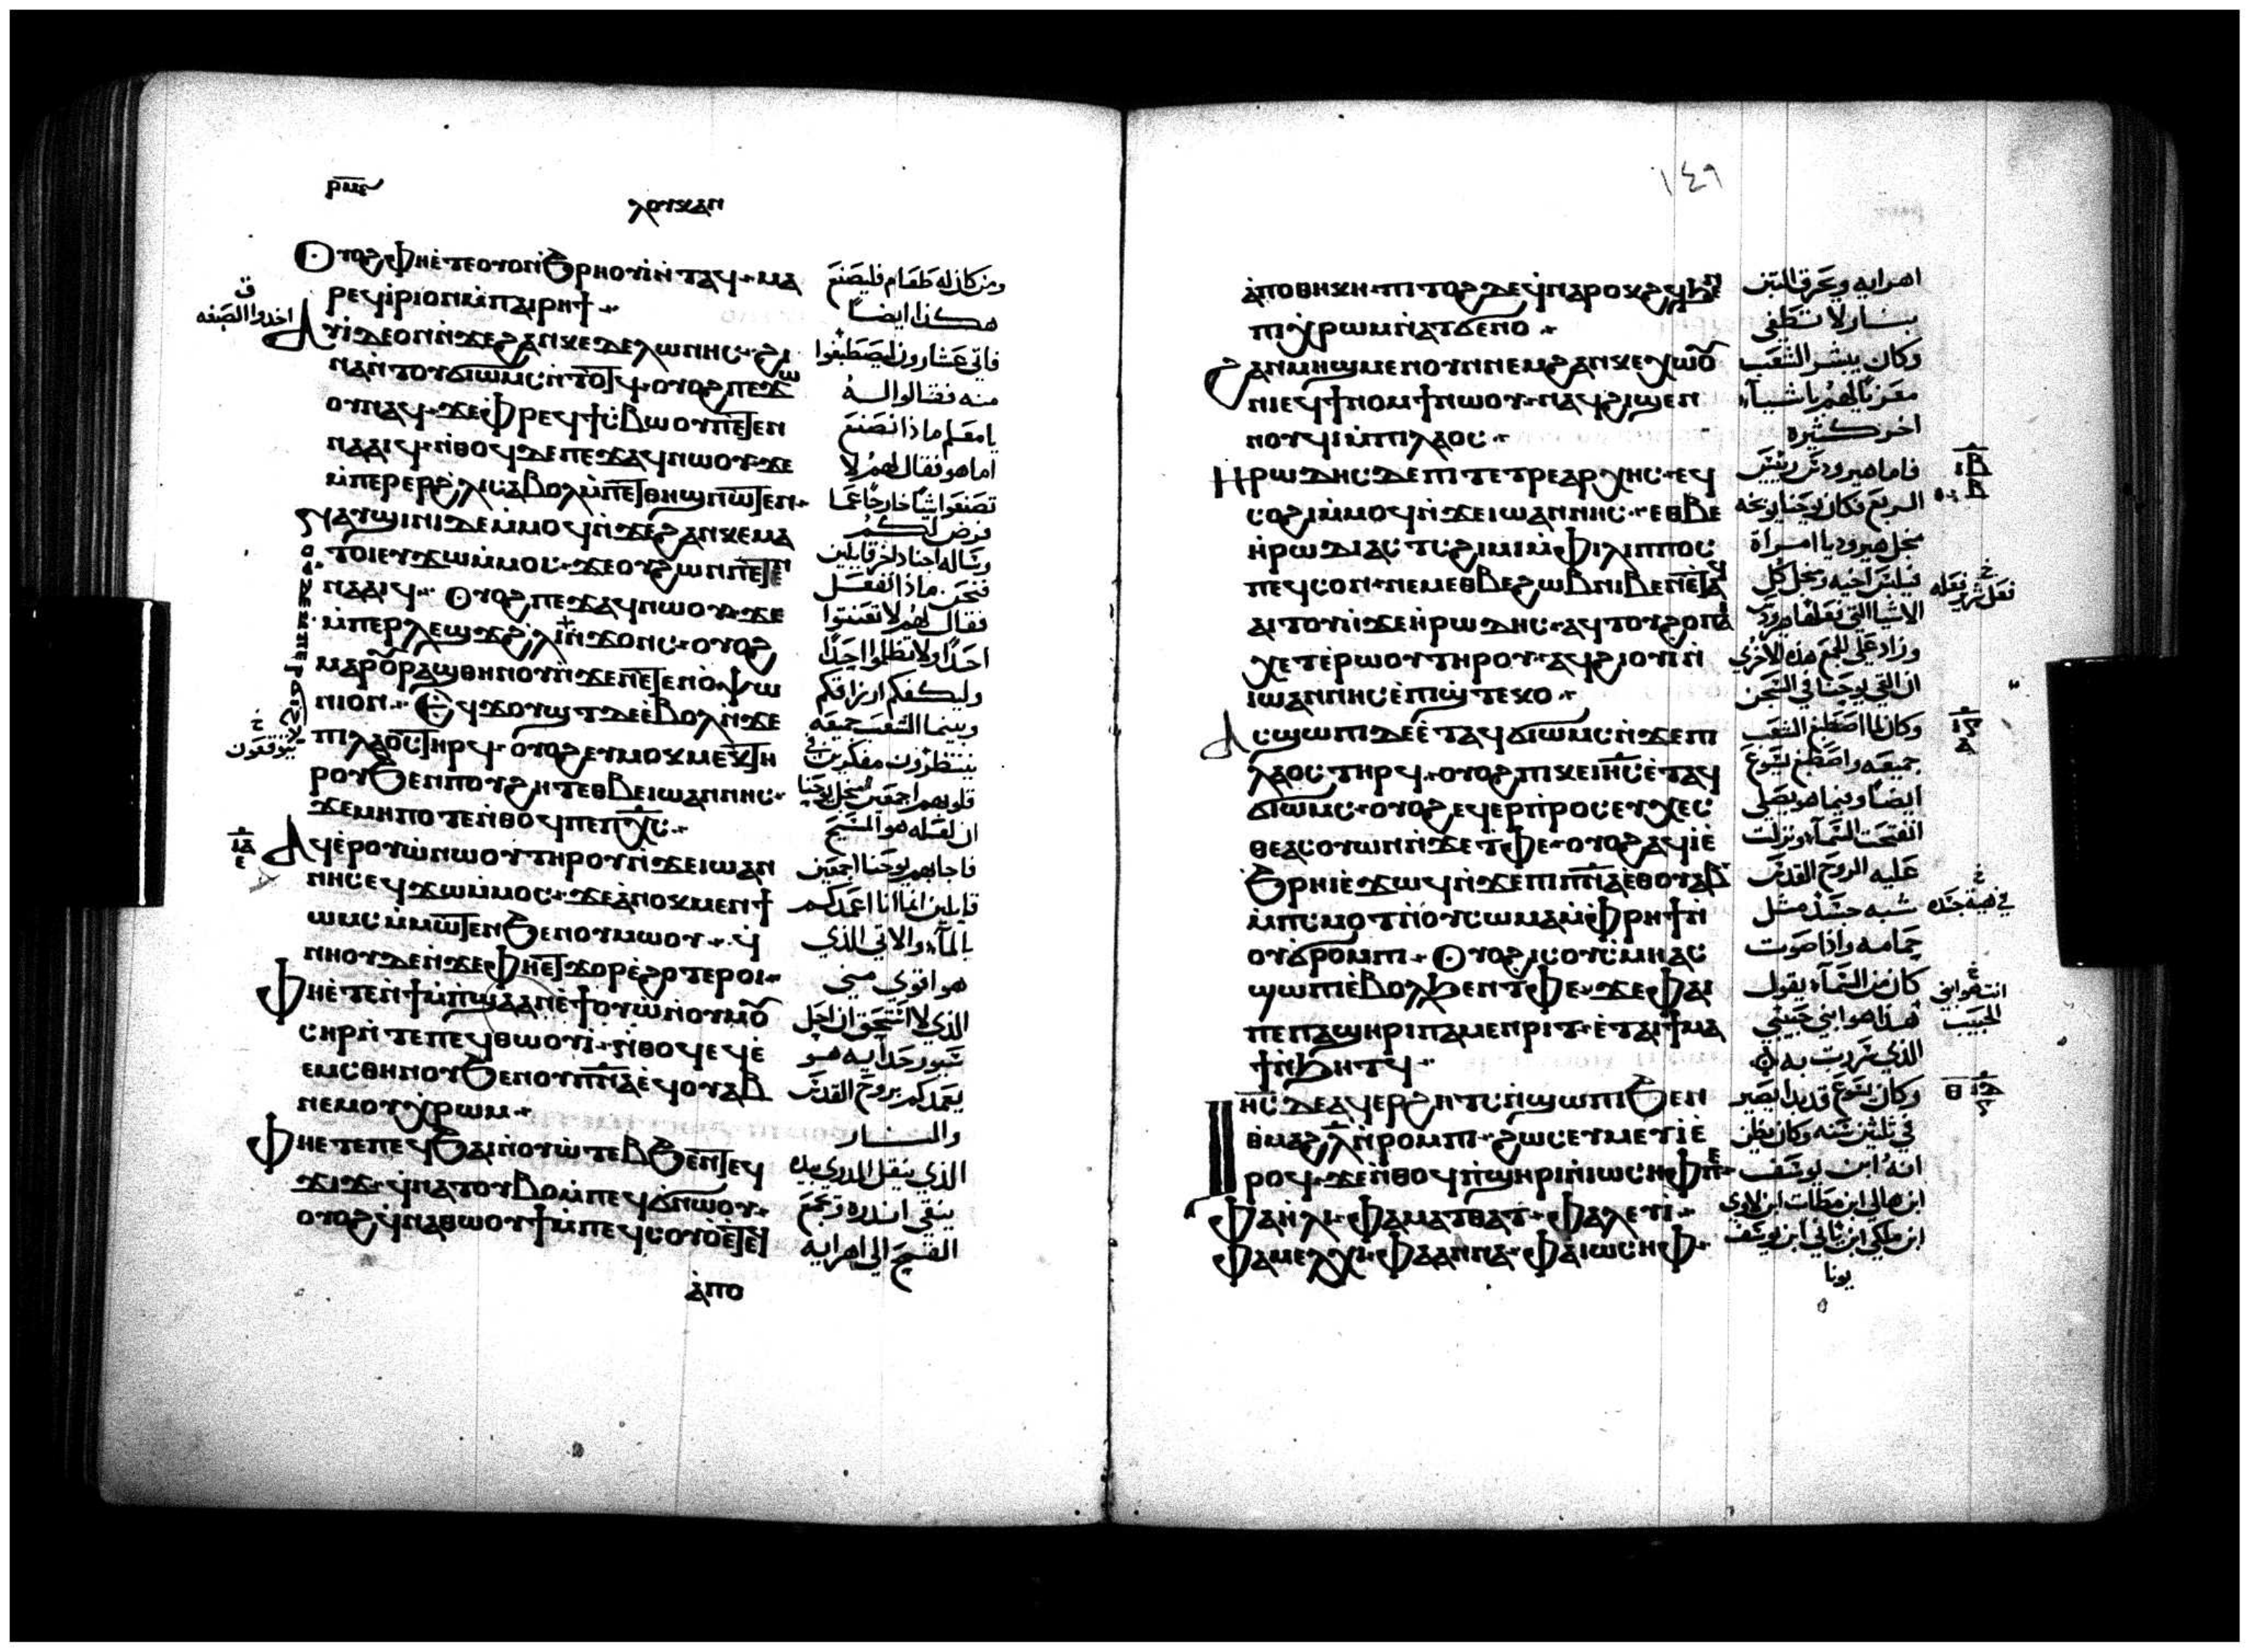 ⲣⲙⲉ
ⲗⲟⲩⲕⲁⲛ
Ⲟⲩⲟϩ ⲫⲏⲉ̀ⲧⲉⲟⲩⲟⲛϧⲣⲏⲟⲩⲓ̀ⲛ̀ⲧⲁϥ ⲙⲁ
ⲣⲉϥⲓ̀ⲣⲓ ⲟⲛ ⲙ̀ⲡⲁⲓⲣⲏϯ
Ⲁⲩⲓ̀ ⲇⲉ ⲟⲛ ⲛ̀ϫⲉϩⲁⲛⲕⲉⲧⲉⲗⲱⲛⲏⲥ ϩⲓ
ⲛⲁ ⲛ̀ⲧⲟⲩϭⲓⲱⲙⲥ ⲛ̀ⲧⲟⲧϥ ⲟⲩⲟϩ ⲡⲉϫⲱ
ⲟⲩⲛⲁϥ ϫⲉ ⲫⲣⲉϥϯⲥ̀ⲃⲱ ⲟⲩⲡⲉⲧⲉⲛ
ⲛⲁⲁⲓϥ ⲛ̀ⲑⲟϥ ⲇⲉ ⲡⲉϫⲁϥ ⲛⲱⲟⲩ ϫⲉ
ⲙ̀ⲡⲉⲣⲉⲣϩ̀ⲗⲓ ⲥⲁⲃⲟⲗ ⲙ̀ⲡⲉⲧⲑⲏϣ ⲛⲱⲧⲉⲛ
ⲛⲁⲩϣⲓⲛⲓ ⲇⲉ ⲙ̀ⲙⲟϥ ⲛ̀ϫⲉϩⲁⲛⲕⲉⲙⲁ
ⲧⲟⲓ ⲉⲩϫⲱ ⲙ̀ⲙⲟⲥ ϫⲉ ⲟⲩϩⲱⲛ ⲡⲉⲧⲉⲛ
ⲛⲁⲁⲓϥ Ⲟⲩⲟϩ ⲡⲉϫⲁϥ ⲛⲱⲟⲩ ϫⲉ
ⲙ̀ⲡⲉⲣⲗⲉⲱϫ ϩ̀ⲗⲓ ⲛ̀ϫⲟⲛⲥ ⲟⲩⲟϩ
ⲙⲁⲣⲟⲩⲣⲁϣⲑⲏⲛⲟⲩ ⲛ̀ϫⲉⲛⲉⲧⲉⲛⲟ̀ⲯⲱ
ⲛⲓⲟⲛ Ⲉϥϫⲟⲩϣⲧ ⲇⲉ ⲉ̀ⲃⲟⲗ ⲛ̀ϫⲉ
ⲡⲓⲗⲁⲟⲥ ⲧⲏⲣϥ ⲟⲩⲟϩ ⲉⲩⲙⲟⲕⲙⲉⲕ ⲧⲏ
ⲣⲟⲩ ϧⲉⲛ ⲡⲟⲩϩⲏⲧ ⲉⲑⲃⲉ ⲓⲱⲁⲛⲛⲏⲥ
ϫⲉ ⲙⲏⲡⲟⲧⲉ ⲛ̀ⲑⲟϥ ⲡⲉ ⲡⲭ̅ⲥ̅
Ⲁϥⲉ̀ⲣⲟⲩⲱ̀ ⲛⲱⲟⲩ ⲧⲏⲣⲟⲩ ⲛ̀ϫⲉⲓⲱⲁⲛ
ⲛⲏⲥ ⲉϥϫⲱ ⲙ̀ⲙⲟⲥ ϫⲉ ⲁ̀ⲛⲟⲕ ⲙⲉⲛ ϯ
ⲱⲙⲥ ⲙ̀ⲙⲱⲧⲉⲛ ϧⲉⲛ ⲟⲩⲙⲱⲟⲩ ϥ̀
ⲛⲏⲟⲩ ⲇⲉ ⲛ̀ϫⲉⲫⲏⲉⲧϫⲟⲣ ⲉ̀ϩⲟⲧⲉⲣⲟⲓ
Ⲫⲏⲉ̀ⲧⲉⲛ̀ϯⲙ̀ⲡϣⲁ ⲁⲛ ⲉ̀ϯⲟⲩⲱ̀ ⲛ̀ⲟⲩⲙⲟⲩ
ⲥⲏⲣ ⲛ̀ⲧⲉ ⲡⲉϥⲑⲱⲟⲩⲓ̀ ⲛ̀ⲑⲟϥ ⲉϥⲉ̀
ⲉⲙⲥⲑⲏⲛⲟⲩ ϧⲉⲛ ⲟⲩⲡ̅ⲛ̅ⲁ̅ ⲉ̀ϥⲟⲩⲁⲃ
ⲛⲉⲙ ⲟⲩⲭ̀ⲣⲱⲙ
Ⲫⲏⲉ̀ⲧⲉⲡⲉϥϧⲁⲓ ⲛ̀ⲟⲩⲱ̀ⲧⲉⲃ ϧⲉⲛ ⲧⲉϥ
ϫⲓϫ ϥ̀ⲛⲁⲧⲟⲩⲃⲟ ⲙ̀ⲡⲉϥϭ̀ⲛⲱⲟⲩ
ⲟⲩⲟϩ ϥ̀ⲛⲁⲑⲱⲟⲩϯ ⲙ̀ⲡⲉϥⲥⲟⲩⲟ̀ ⲉ̀ⲧⲉϥ
ⲁ̀ⲡⲟ
ومن كان له طعام فليصنع
هكذا ايضاً
فاتي عشارون ليصطبغوا
منه فقالوا له
يا معلم ماذا نصنع
اما هو فقال لهم لا
تصنعوا شيا خارجا عما
فرض لكم
وساله اجناد اخر قايلين
فنحن ماذا نفعل
فقال لهم لا تعنتوا
احدا ولا تظلموا احدا
وليكفكم ارزاقكم
وبينما الشعب جميعه
ينتظرون مفكرين في
قلوبهم اجمعين لاجل يوحنا
ان لعله هو المسيح
فاجابهم يوحنا اجمعين
قايلين اما انا اعمدكم
بالمآء والاتي الذي
هو اقوي مني
الذي لا استحق ان احل
سيور حدايه هو
يعمدكم بروح القدس
والنار
الذي ينقل المدري بيده
ينقي اندره وتجمع
القمح الي اهرايه
١٤٩
ⲁ̀ⲡⲟⲑⲏⲕⲏ ⲡⲓⲧⲟϩ ⲇⲉ ϥ̀ⲛⲁⲣⲟⲕϩϥ ϧⲉⲛ
ⲡⲓⲭ̀ⲣⲱⲙ ⲛ̀ⲁⲧϭⲉⲛⲟ
Ϩⲁⲛⲙⲏϣ ⲙⲉⲛ ⲟⲩⲛ ⲛⲉⲙ ϩⲁⲛⲕⲉⲭⲱⲟⲩ
ⲛⲓ ⲉϥϯⲛⲟⲙϯ ⲛⲱⲟⲩ ⲛⲁϥϩⲓϣⲉⲛ
ⲛⲟⲩϥⲓ ⲙ̀ⲡⲓⲗⲁⲟⲥ
Ⲏⲣⲱⲇⲏⲥ ⲇⲉ ⲡⲓⲧⲉⲧⲣⲉⲁⲣⲭⲏⲥ ⲉϥ
ⲥⲟϩⲓ ⲙ̀ⲙⲟϥ ⲛ̀ϫⲉⲓⲱⲁⲛⲛⲏⲥ ⲉⲑⲃⲉ
ⲏ̀ⲣⲱⲇⲓⲁⲥ ⲧⲥ̀ϩⲓⲙⲓ ⲙ̀ⲫⲓⲗⲓⲡⲡⲟⲥ
ⲡⲉϥⲥⲟⲛ ⲛⲉⲙ ⲉⲑⲃⲉ ϩⲱⲃ ⲛⲓⲃⲉⲛ ⲉⲧⲁϥ
ⲁⲓⲧⲟⲩ ⲛ̀ϫⲉⲏⲣⲱⲇⲏⲥ ⲁϥⲧⲟⲩϩⲟ ⲡⲁⲓ
ⲭⲉⲧ ⲉ̀ⲣⲱⲟⲩ ⲧⲏⲣⲟⲩ ⲁϥϩⲓⲟⲩⲓ̀ ⲛ̀
ⲓⲱⲁⲛⲛⲏⲥ ⲉ̀ⲡⲓϣⲧⲉⲕⲟ
Ⲁⲥϣⲱⲡⲓ ⲇⲉ ⲉ̀ⲧⲁϥϭⲓⲱⲙⲥ ⲛ̀ϫⲉⲡⲓ
ⲗⲁⲟⲥ ⲧⲏⲣϥ ⲟⲩⲟϩ ⲡⲓⲕⲉⲓⲏ̅ⲥ̅ ⲉ̀ⲧⲁϥ
ϭⲓⲱⲙⲥ ⲟⲩⲟϩ ⲉϥⲉⲣⲡⲣⲟⲥⲉⲩⲭⲉⲥ
ⲑⲉ ⲁⲥⲟⲩⲱⲛ ⲛ̀ϫⲉⲧⲫⲉ ⲟⲩⲟϩ ⲁϥⲓ̀ ⲉ̀
ϧⲣⲏⲓ ⲉ̀ϫⲱϥ ⲛ̀ϫⲉⲡⲓⲡ̅ⲛ̅ⲁ̅ ⲉⲑⲟⲩⲁⲃ
ⲙ̀ⲡⲥⲙⲟⲧ ⲛ̀ⲟⲩⲥⲱⲙⲁ ⲙ̀ⲫⲣⲏϯ ⲛ̀
ⲟⲩϭⲣⲟⲙⲡⲓ Ⲟⲩⲟϩ ⲓⲥ ⲟⲩⲥ̀ⲙⲏ ⲁⲥ
ϣⲱⲡⲓ ⲉ̀ⲃⲟⲗϧⲉⲛ ⲧⲫⲉ ϫⲉ ⲫⲁⲓ
ⲡⲉ ⲡⲁϣⲏⲣⲓ ⲡⲁⲙⲉⲛⲣⲓⲧ ⲉ̀ⲧⲁⲓϯⲙⲁ
ϯ ⲛ̀ϧⲏⲧϥ
Ⲓⲏ̅ⲥ̅ ⲇⲉ ⲁϥⲉⲣϩⲏⲧⲥ ⲛ̀ϣⲱⲡⲓ ϧⲉⲛ
ⲑⲙⲁϩⲗ̅ ⲛ̀ⲣⲟⲙⲡⲓ ϩⲱⲥ ⲉⲩⲙⲉⲩⲓ̀ ⲉ̀
ⲣⲟϥ ϫⲉ ⲛ̀ⲑⲟϥ ⲡ̀ϣⲏⲣⲓ ⲛ̀ⲓⲱⲥⲏⲫ ⲡⲉ
Ⲫⲁⲏⲗⲓ ⲫⲁⲙⲁⲧⲑⲁⲧ ⲫⲁⲗⲉⲩⲓ̀
Ⲫⲁⲙⲉⲗⲭⲓ ⲫⲁⲁⲛⲛⲁ ⲫⲁⲓⲱⲥⲏⲫ
اهرايه ويحرق التبن
بنار لا تنطفي
وكان يبشر الشعب
معزيا لهم باشيآء
اخر كثيره
فاما هيرودس رييس
الربع فكان يوحنا يوبخه
لاجل هيروديا امراة
فيلبس اخيه ولاجل كل
الاشيا التي فعلها هيرودس
وزاد علي الجميع هذه الاخري
ان القي يوحنا في السجن
وكان لما اصطبغ الشعب
جميعه واصطبغ يسوع
ايضا وبينما هو يصلي
انفتحت السمآء ونزلت
عليه الروح القدس
شبه جسد مثل
حمامه واذا صوت
كان من السمآء يقول
هذا هو ابني حبيبي
الذي سررت به
وكان يسوع قد بدا يصير
في ثلثين سنه وكان يظن
انه ابن يوسف
ابن هالي ابن مطات ابن لاوي
ابن ملكي ابن ياني ابن يوسف
يونا